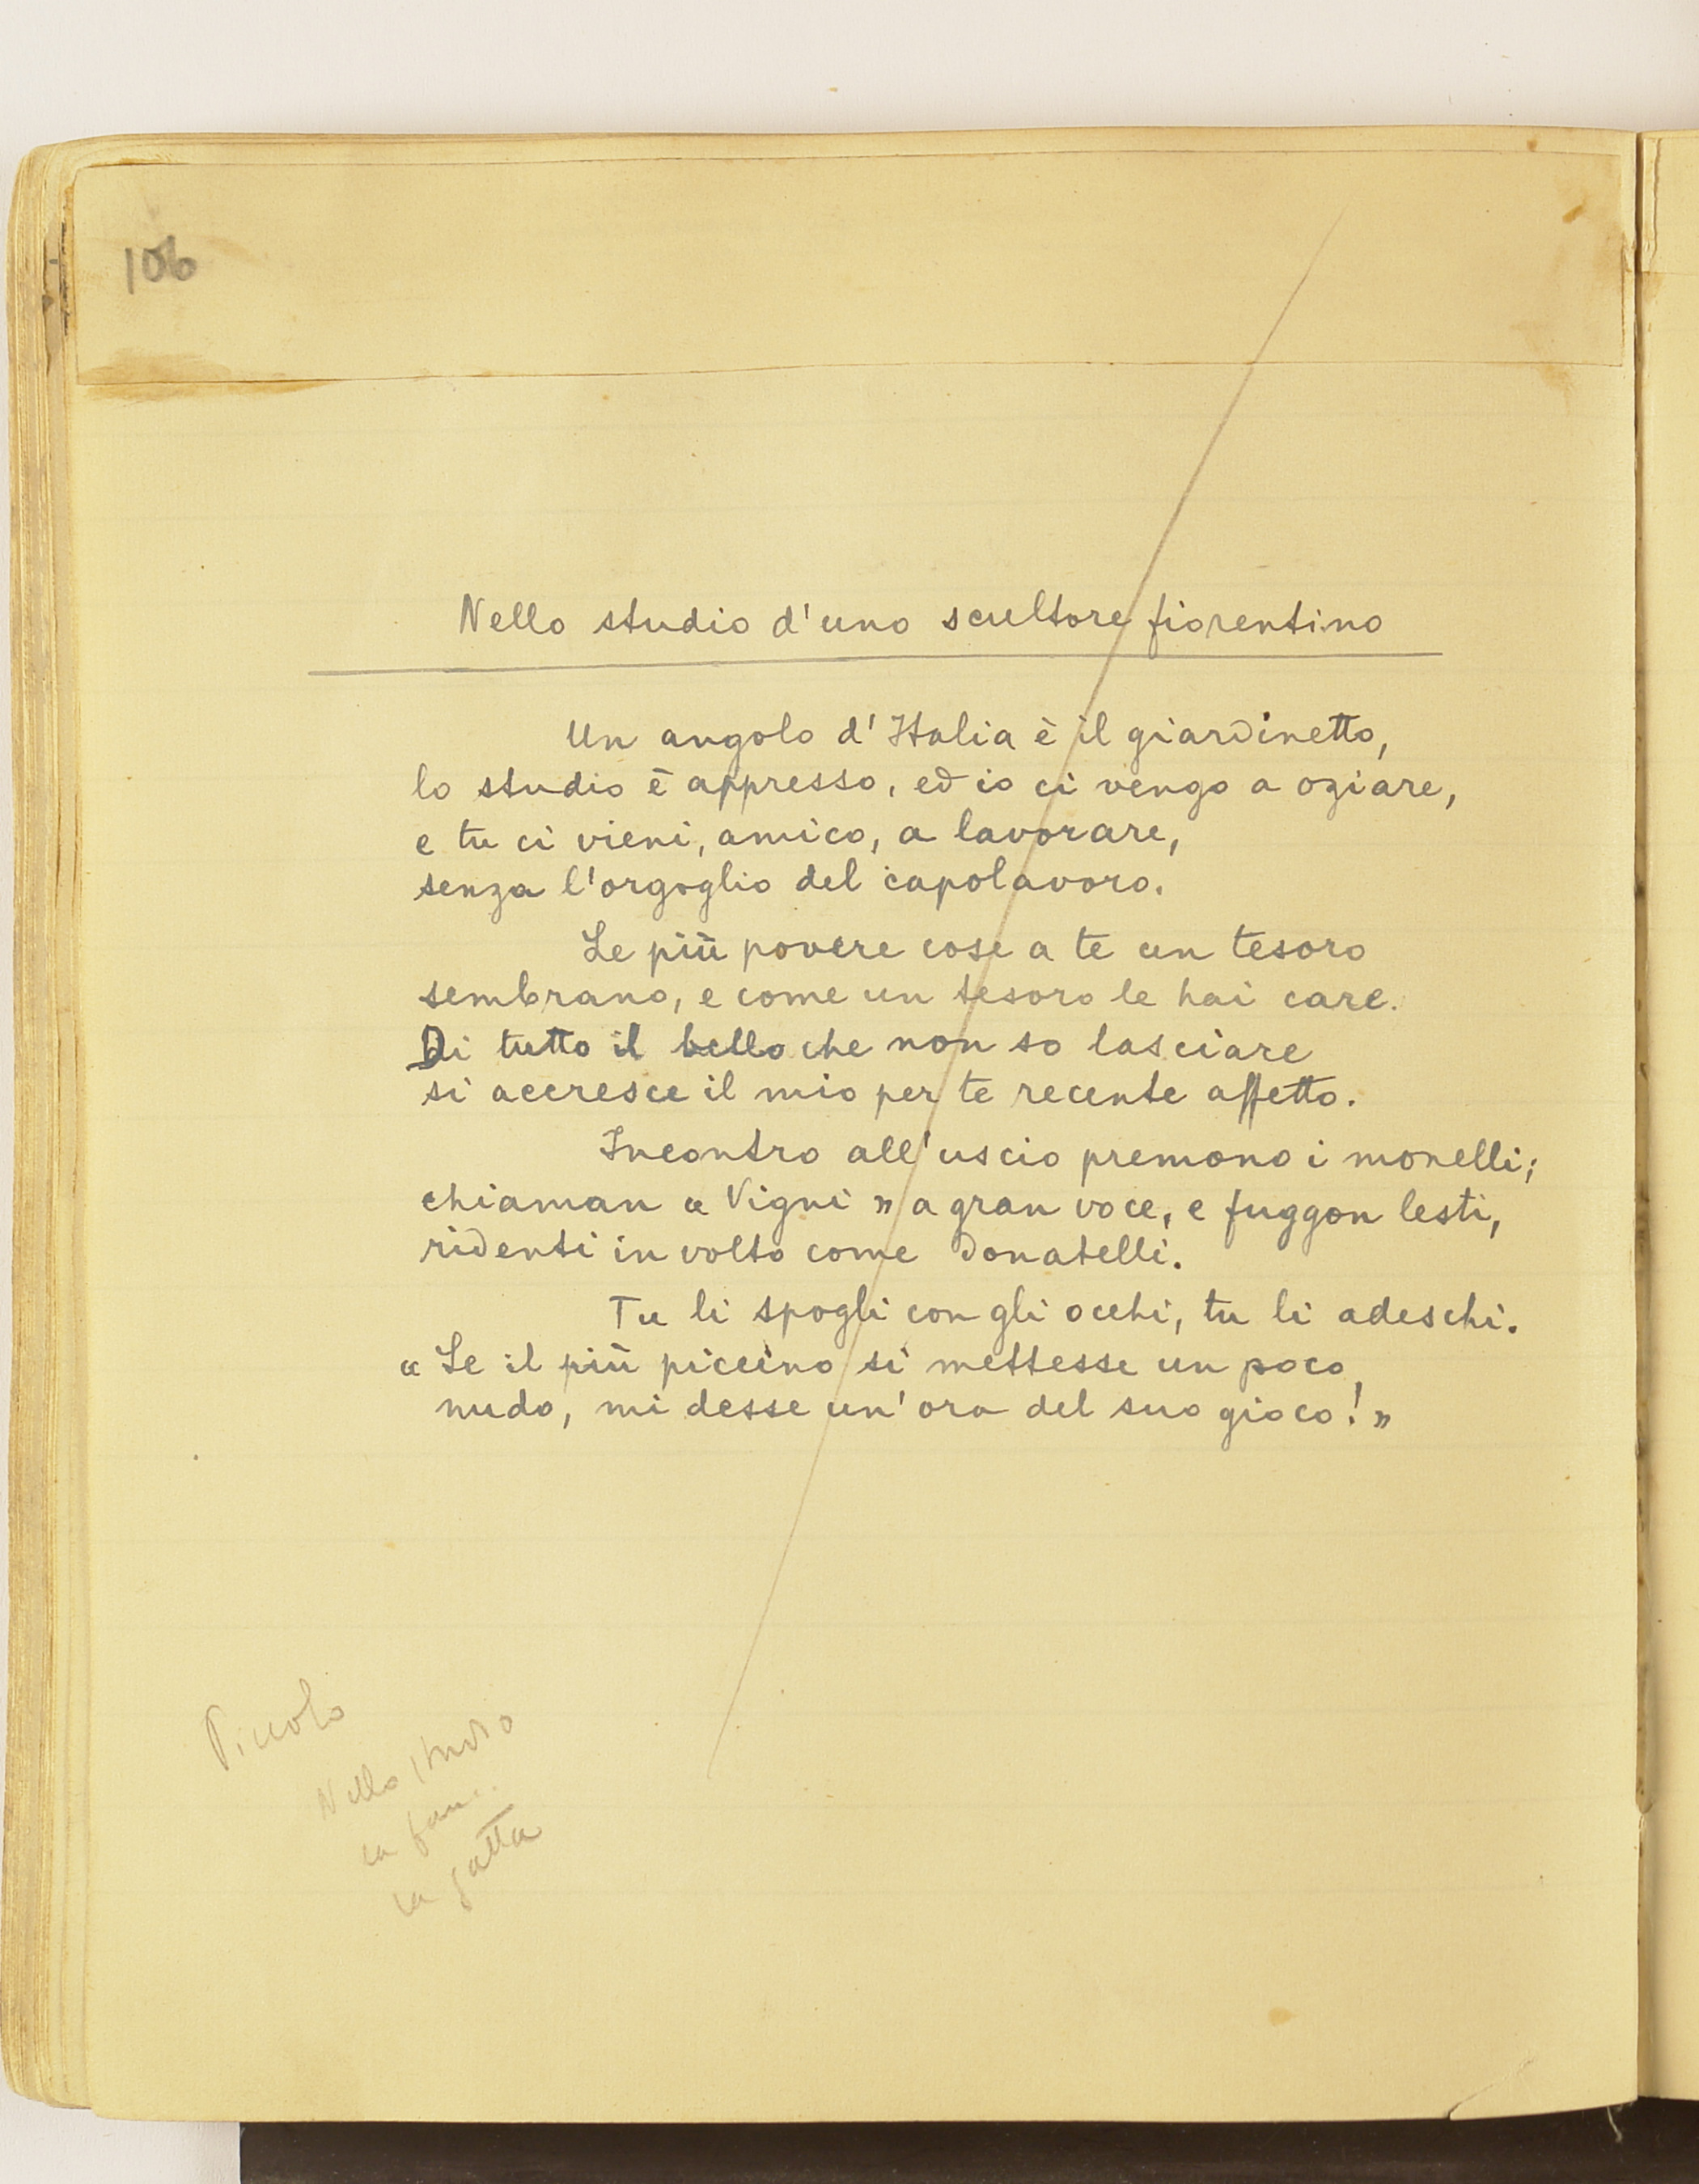 106
Nello studio d'uno scultore fiorentino
Un angolo d'Italia è il giardinetto,
lo studio è appresso, ed io ci vengo a oziare,
e tu ci vieni, amico, a lavorare,
senza l'orgoglio del capolavoro.
Le più povere cose a te un tesoro
sembrano, e come un tesoro le hai care.
Di tutto il bello che non so lasciare
si accresce il mio per te recente affetto.
Incontro all'uscio premono i monelli;
chiaman « Vigni » a gran voce, e fuggon lesti,
ridenti in volto come donatelli.
Tu li spogli con gli occhi, tu li adeschi.
« Se il più piccino si mettesse un poco
nudo, mi desse un'ora del suo gioco! »
Piccolo
Nello studio
la
la gatta